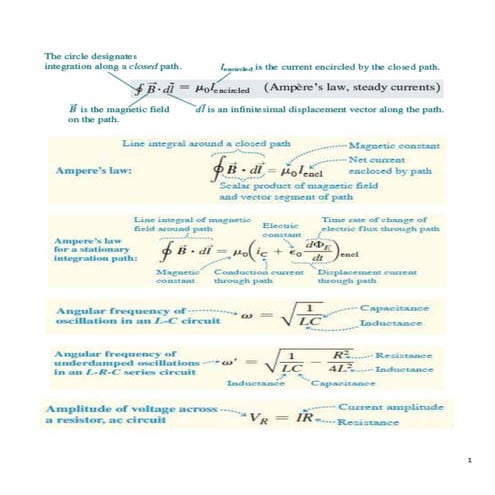 The circle designates
integration along a closed path.
I encircled is the current encircled by the closed path.
∮ B⃗ · dl⃗ = μ₀I encircled (Ampère's law, steady currents)
B⃗ is the magnetic field
on the path.
dl⃗ is an infinitesimal displacement vector along the path.
Line integral around a closed path
Magnetic constant
Ampere's law:
∮ B⃗ · dl⃗ = μ₀I encl
Net current
enclosed by path
Scalar product of magnetic field
and vector segment of path
Line integral of magnetic
field around path
Electric
constant
Time rate of change of
electric flux through path
Ampere's law
for a stationary
integration path:
∮ B⃗ · dl⃗ = μ₀(i_C + ε₀ dΦ_E/dt) encl
Magnetic
constant
Conduction current
through path
Displacement current
through path
Angular frequency of
oscillation in an L-C circuit
ω = √(1/LC)
Capacitance
Inductance
Angular frequency of
underdamped oscillations
in an L-R-C series circuit
ω′ = √(1/LC − R²/4L²)
Resistance
Inductance
Inductance
Capacitance
Amplitude of voltage across
a resistor, ac circuit
V_R = IR
Current amplitude
Resistance
1